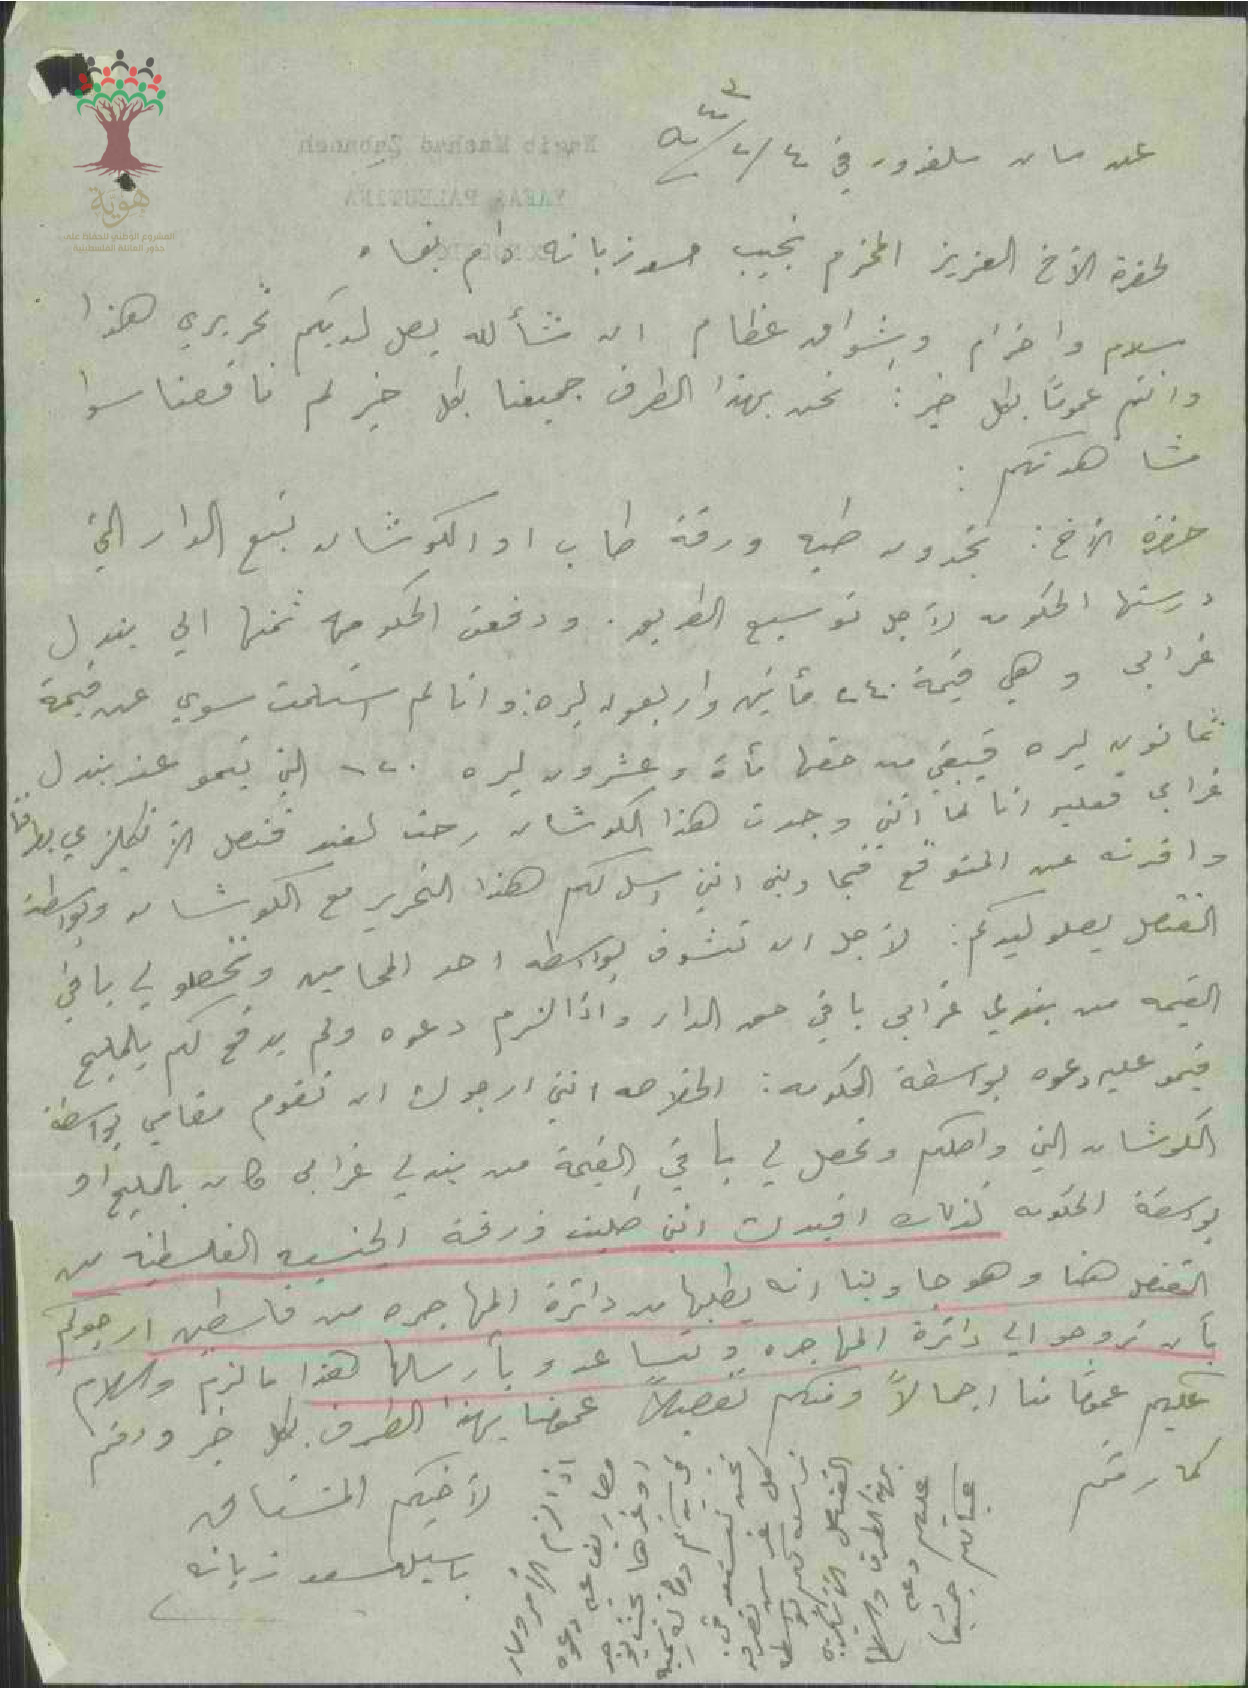 هوية
المشروع الوطني للحفاظ على
جذور العائلة الفلسطينية
Nagib Mashud Zabaneh
YAFAA PALESTINA
عن سان سلفدور في ٤/٢/
لحضرة الأخ العزيز المحترم نجيب مسعد زبانه دام بقاه
سلام واحترام وشواق عظام ان شأ الله يصل لديكم تحريري هذا
وانتم عموماً بكل خير: نحن بهذا الطرف جميعنا بكل خير لم ناقصنا سوا
مشاهدتكم:
حضرة الأخ: تجدون طيه ورقة طاب او الكوشان تبع الدار التي
درستها الحكومه لأجل توسيع الطريق. ودفعت الحكومه ثمنها الى بندلي
غرابي وهي قيمة ٢٤٠ مأتين واربعون ليره: وانا لم استلمت سوى عن قيمة
ثمانون ليره فيبقى من حقها مأة وعشرون ليره ١٢٠ التي عند بندلي
غرابي فعليه انا لما انني وجدت هذا الكوشان رحت لعند قنصل الانكليزي
وافدته عن المتوقع فجاوبني انني ارسل لكم هذا التحرير مع الكوشان وبواسطة
القنصل يصلو ليدكم: لأجل ان تشوف بواسطه احد المحامين وتحصلو لي باقي
القيمه من بندلي غرابي باقي حق الدار واذا لزم دعوه ولم يدفع لكم بالمليح
عليه دعوه بواسطة الحكومه: الخلاصه انني ارجوك ان تقوم مقامي بواسطة
الكوشان التي واصلكم وتحصل لي باقي القيمة من بندلي غرابي كان بالمليح او
بوسطة الحكومه كذلك افيدك انني طلبت ورقة الجنسيه الفلسطنيه من
القنصل هنا وهو جاوبنا انه يطلبها من دائرة المهاجره من فلسطين ارجوكم
بأن تروحو الى دائرة المهاجره وتساعدو بأرسالها هذا ما لزم والسلام
عليكم عموماً منا اجمالاً ومنكم تفصيلاً عموما بهذا الطرف بكل خير ودمتم
كما رمتم
لأخيكم المشتاق
باسيل مسعد زبانه
اذا لزم الأمر
مصاريف على دعوه
او غيرها
نحن
كل غرض
بواسطة
القنصل الانكليزي
بهذا الطرف والسلام
عليكم وعلى
عيالكم جميعا